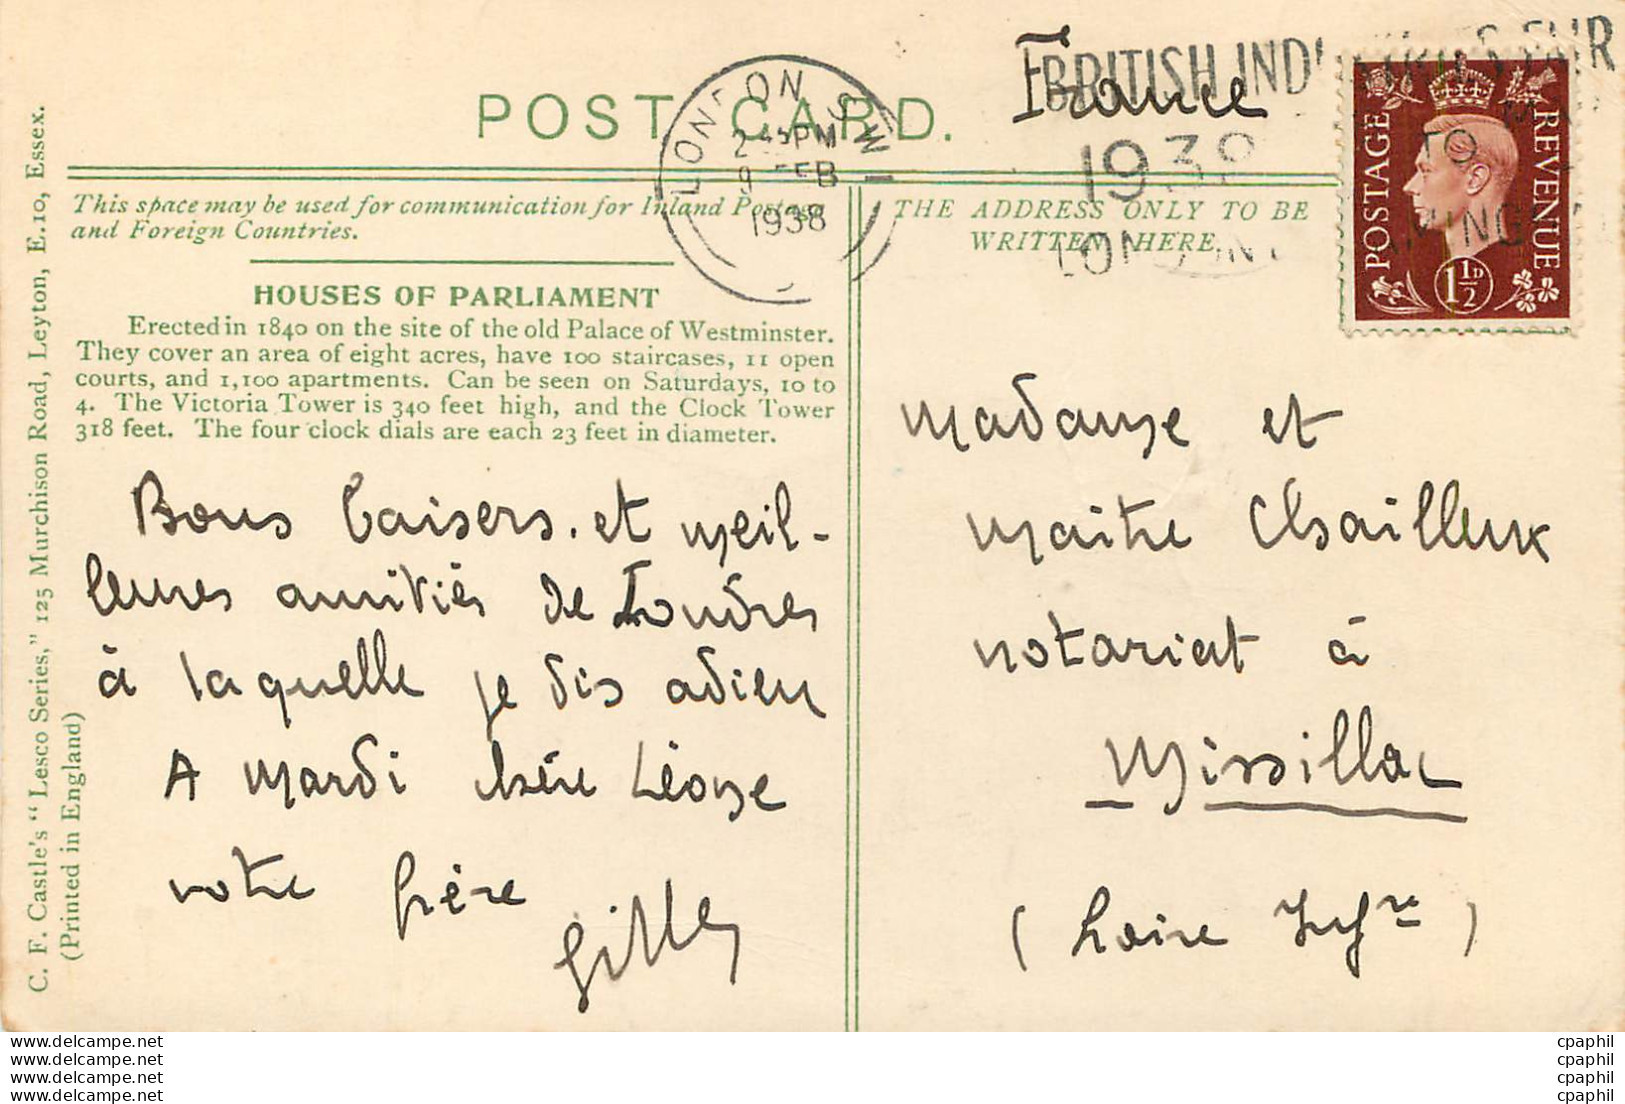 POST CARD.
France
BRITISH IND
1938
LONDON S.W.1
2 45 PM
9 FEB
1938
POSTAGE
REVENUE
1½D
This space may be used for communication for Inland Postage
and Foreign Countries.
THE ADDRESS ONLY TO BE
WRITTEN HERE.
HOUSES OF PARLIAMENT
Erected in 1840 on the site of the old Palace of Westminster.
They cover an area of eight acres, have 100 staircases, 11 open
courts, and 1,100 apartments. Can be seen on Saturdays, 10 to
4. The Victoria Tower is 340 feet high, and the Clock Tower
318 feet. The four clock dials are each 23 feet in diameter.
Bons baisers. et meil-
leures amitiés de Londres
à laquelle je dis adieu
A mardi chère Léone
votre frère
Gilles
Madame et
Maitre Chailleux
notariat à
Missillac
(Loire Infre)
C. F. Castle's "Lesco Series," 125 Murchison Road, Leyton, E.10, Essex.
(Printed in England)
www.delcampe.net
www.delcampe.net
www.delcampe.net
www.delcampe.net
cpaphil
cpaphil
cpaphil
cpaphil